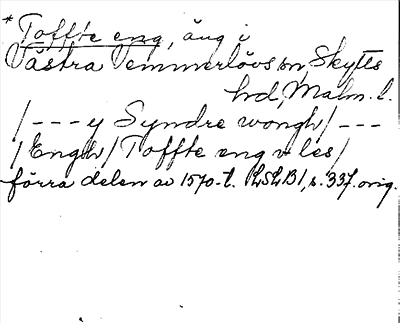 * Toffte eng, äng i
Västra Vemmerlövs sn, Skytts
hd, Malm. l.
/--- y Syndre wongh/---
/Engh/Toffte eng v les/
förra delen av 1570-t. LSLB1, s. 337. orig.